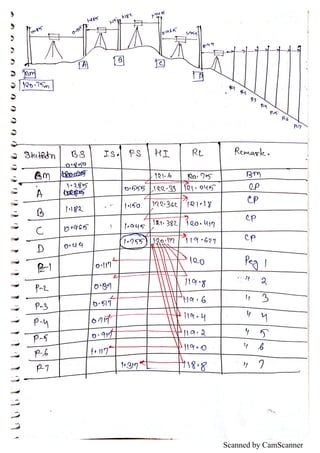 BM
120.75m
A
B
C
D
P1
P2
P3
P4
P5
P6
P7
Station BS IS. FS HI RL Remark.
BM 0.850 121.6 120.75 BM
A 1.285 0.555 122.33 121.045 CP
B 1.182 1.150 122.362 121.18 CP
C 0.965 1.945 121.382 120.417 CP
D 0.49 1.755 120.117 119.627 CP
P-1 0.117 120 Peg 1
P-2 0.317 119.8 " 2
P-3 0.517 119.6 " 3
P-4 0.717 119.4 " 4
P-5 0.917 119.2 " 5
P-6 1.117 119.0 " 6
P-7 1.317 118.8 " 7
Scanned by CamScanner